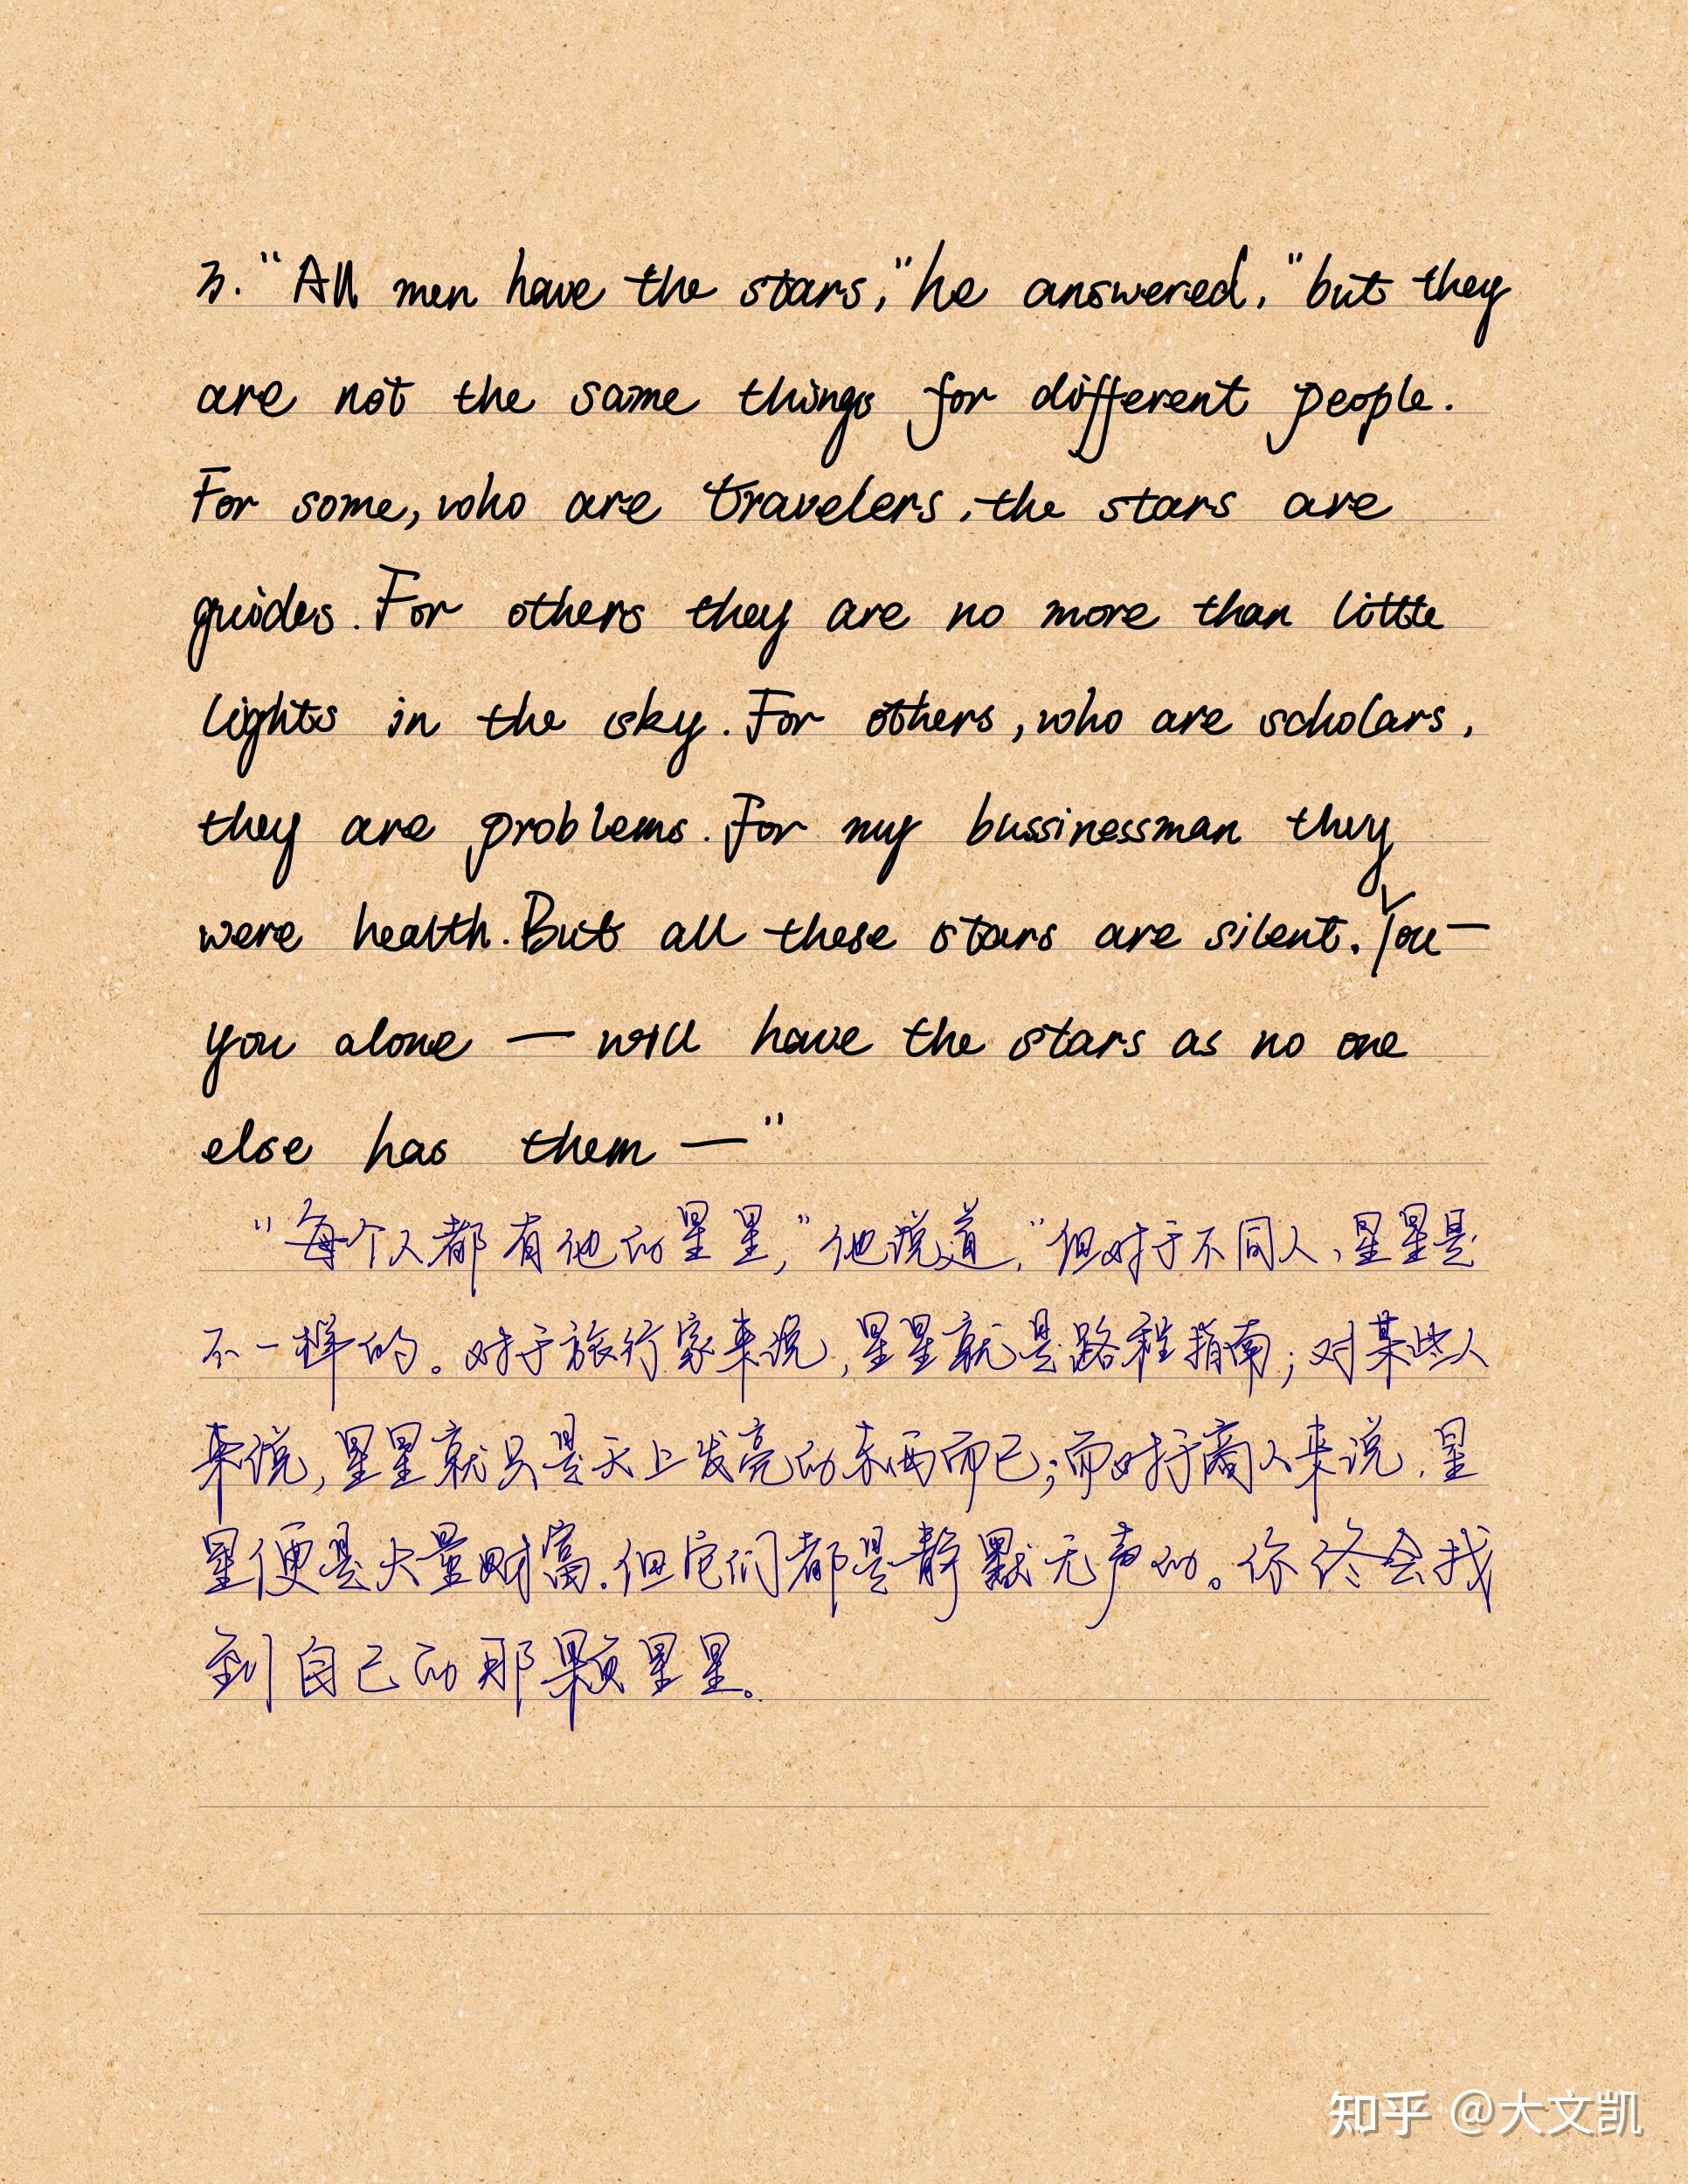 3. "All men have the stars," he answered, "but they
are not the same things for different people.
For some, who are travelers, the stars are
guides. For others they are no more than little
lights in the sky. For others, who are scholars,
they are problems. For my bussinessman they
were health. But all these stars are silent. You —
you alone — will have the stars as no one
else has them — "
"每个人都有他的星星,"他说道,"但对于不同人,星星是
不一样的。对于旅行家来说,星星就是路程指南;对某些人
来说,星星就只是天上发亮的东西而已;而对于商人来说,星
星便是大量财富.但它们都是静默无声的。你终会找
到自己的那颗星星。
知乎 @大文凯